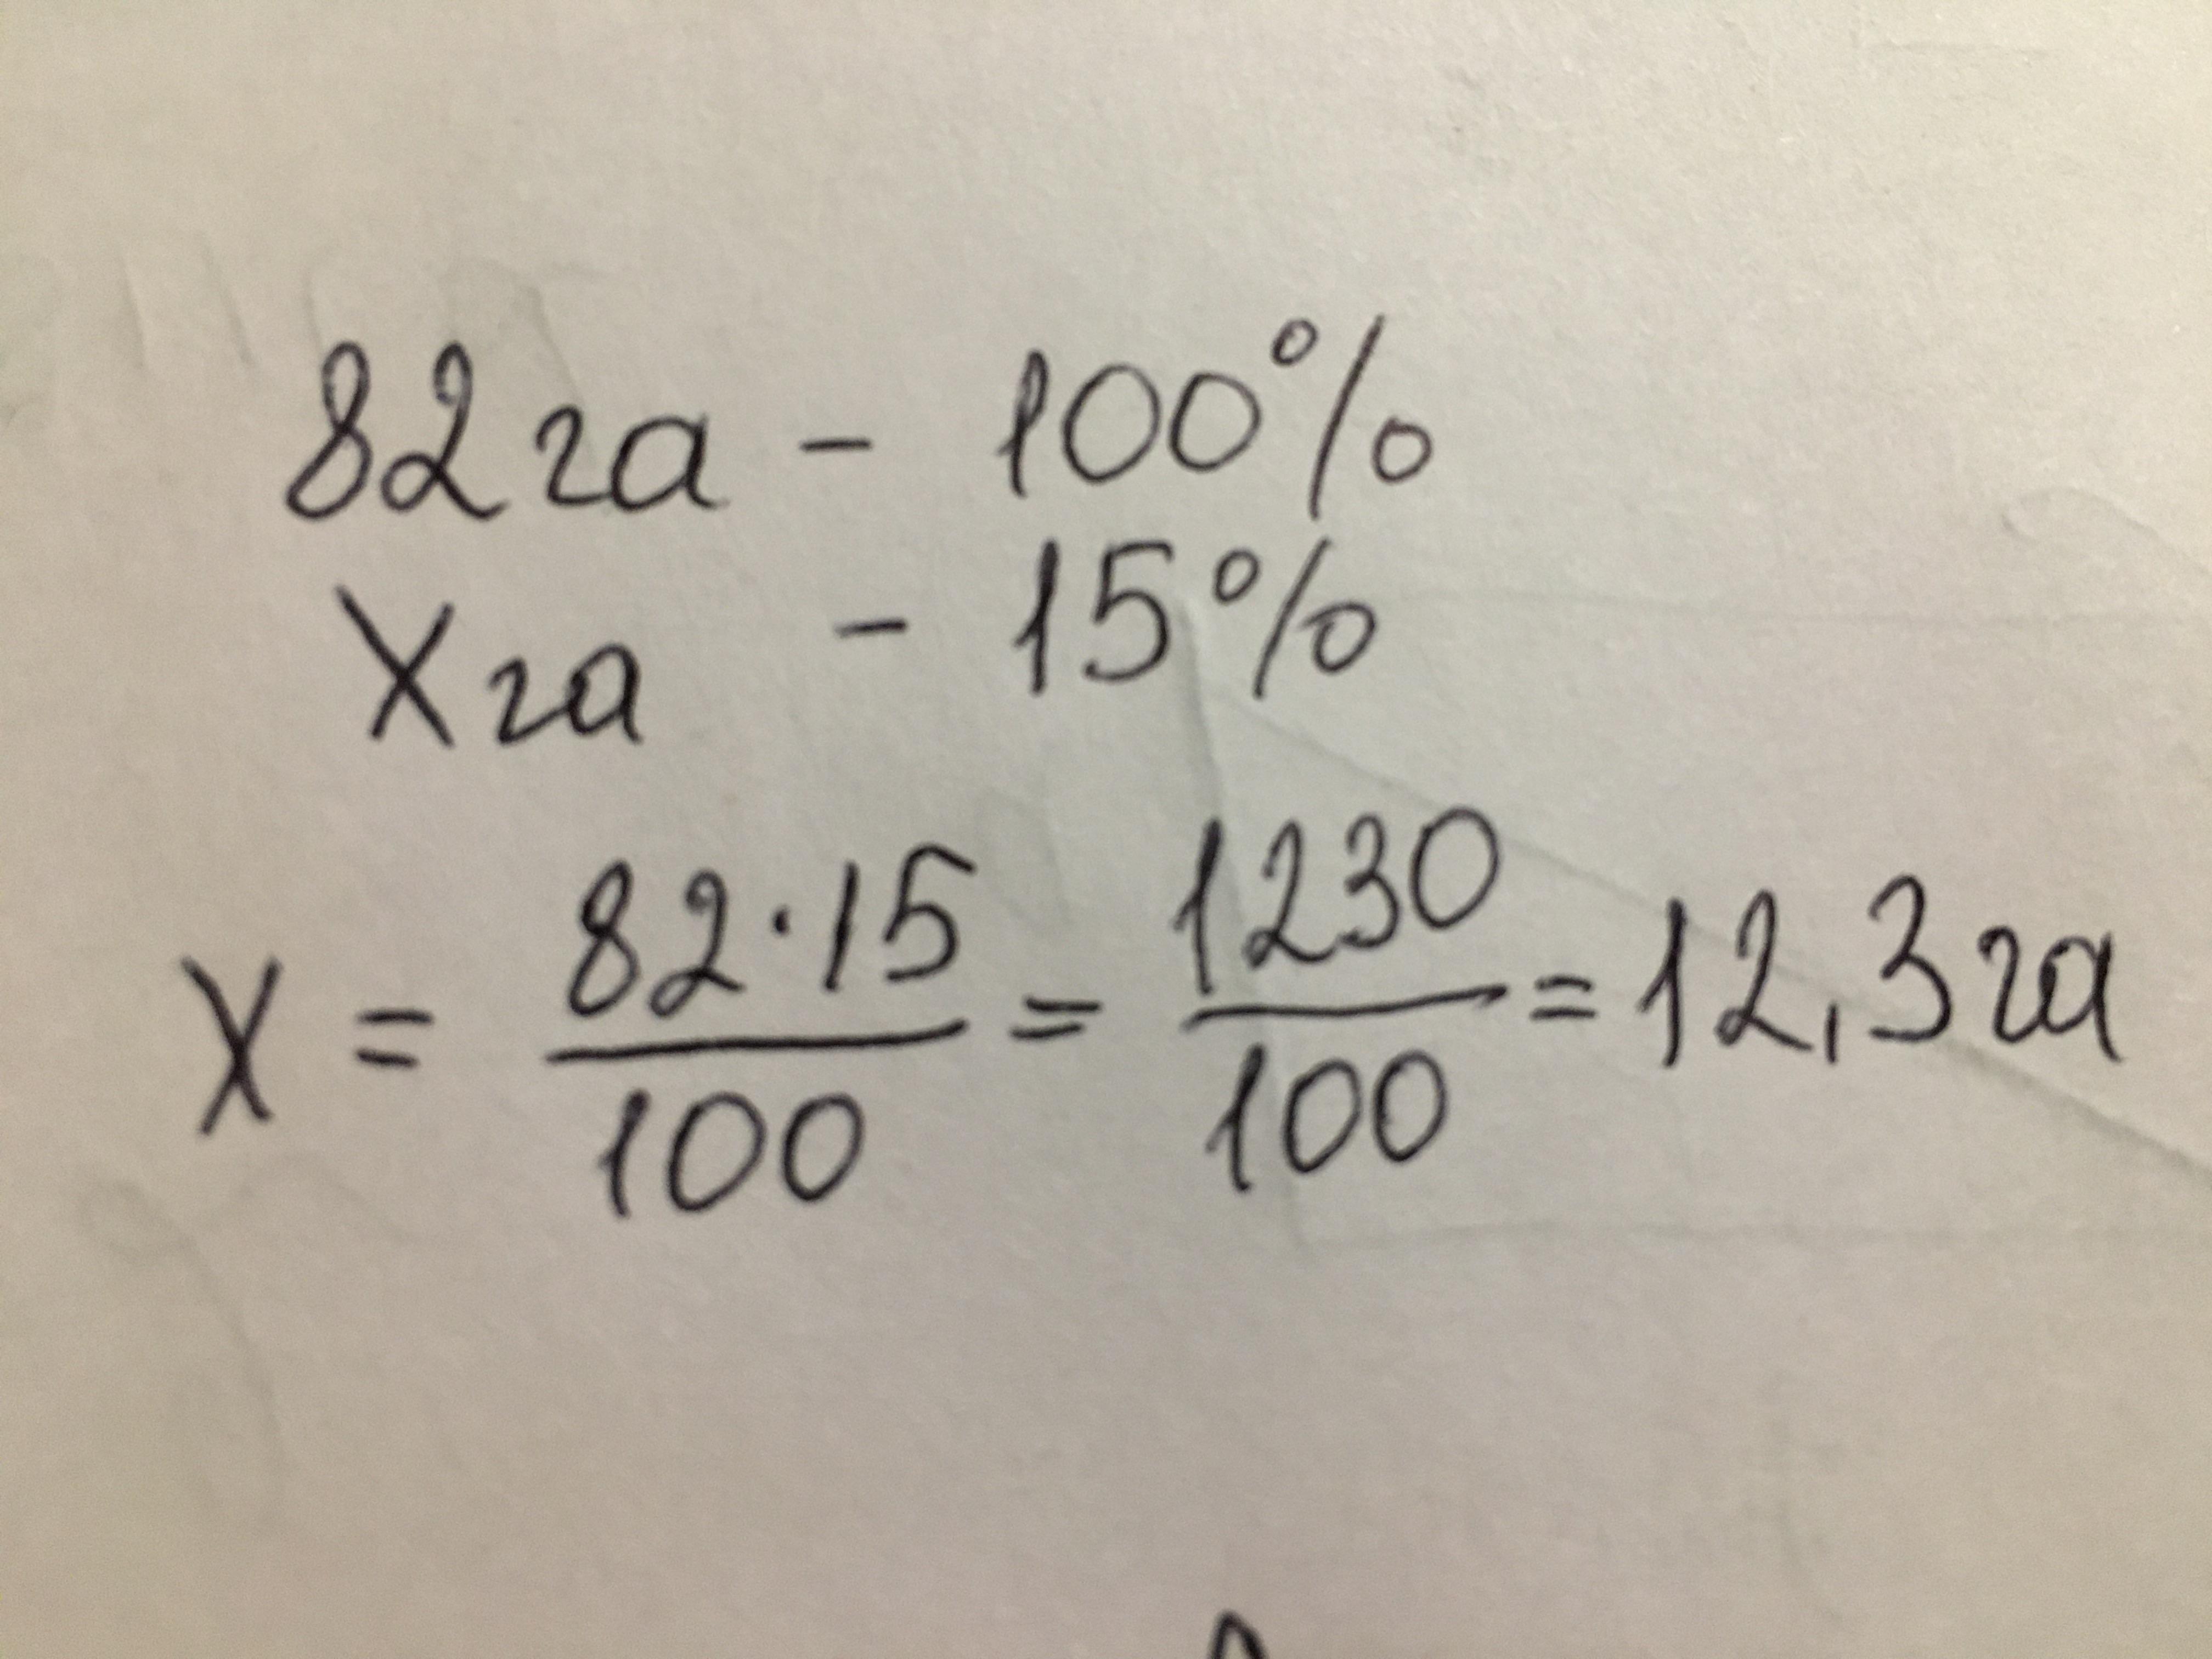 82 га - 100%
X га - 15%
X = 82·15/100 = 1230/100 = 12,3 га